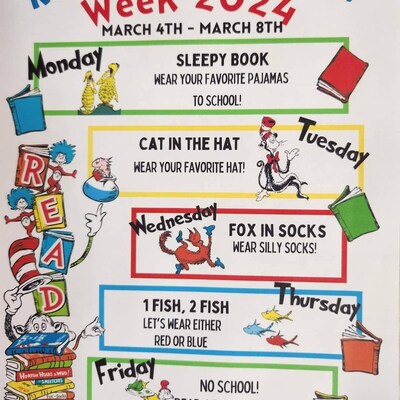 Week 2024
MARCH 4TH - MARCH 8TH
Monday
SLEEPY BOOK
WEAR YOUR FAVORITE PAJAMAS
TO SCHOOL!
Tuesday
CAT IN THE HAT
WEAR YOUR FAVORITE HAT!
READ
Wednesday
FOX IN SOCKS
WEAR SILLY SOCKS!
Thursday
1 FISH, 2 FISH
LET'S WEAR EITHER
RED OR BLUE
Friday
NO SCHOOL!